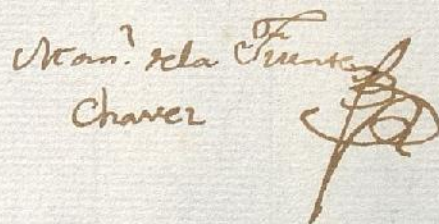 Man.^l dela Fuente
Chavez